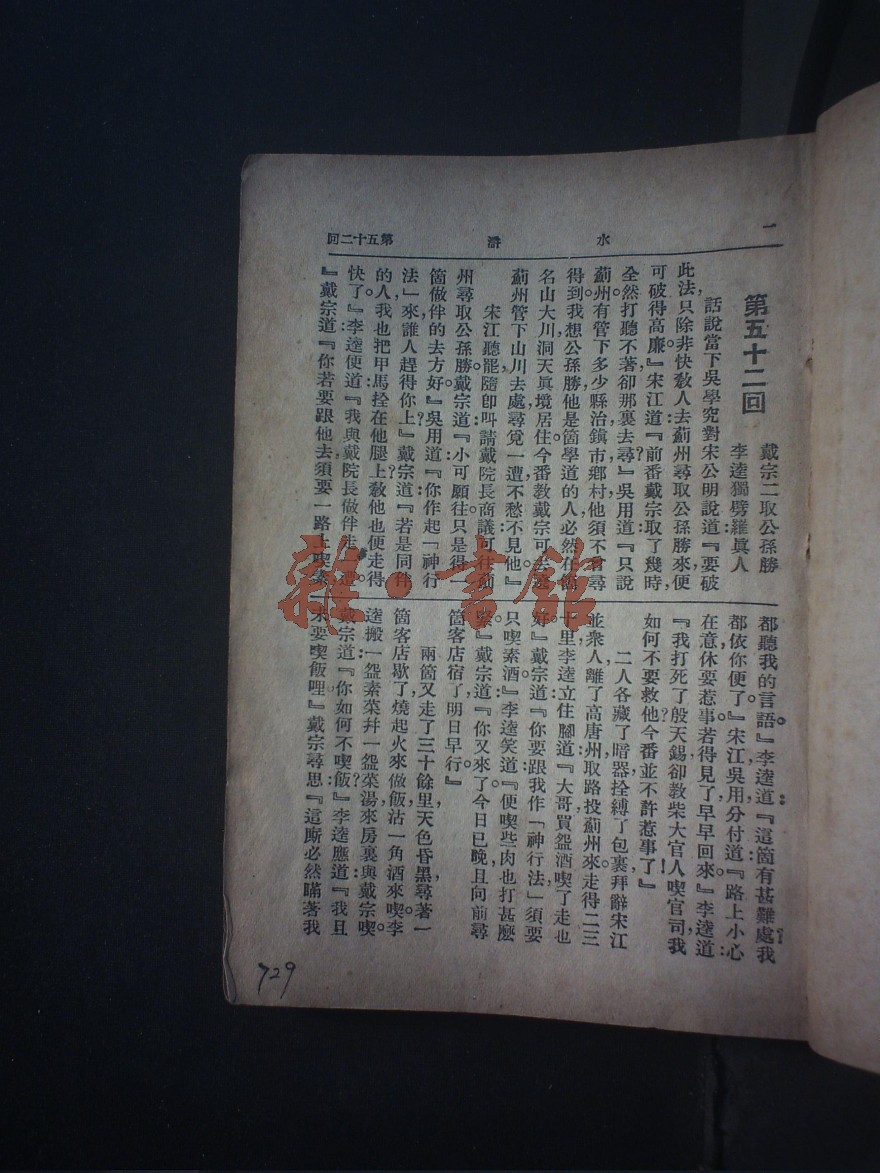 二
水滸
第五十二回
第五十二回
戴宗二取公孫勝
李逵獨劈羅眞人
話說當下吳學究對宋公明說道:『要破
此法,只除非快敎人去薊州尋取公孫勝來,便
可破得高廉。』宋江道:『前番戴宗取了幾時,
全然打聽不著,卻那裏去尋?』吳用道:『只說
薊州,有管下多少縣治、鎭市、鄉村,他須不曾尋
得到。我想公孫勝他是箇學道的人,必然在箇
名山大川,洞天眞境居住。今番敎戴宗可去遶
薊州管下山川去處尋覓一遭,不愁不見他。』
宋江聽罷,隨卽叫請戴院長商議,可往薊
州尋取公孫勝。戴宗道:『小可願往,只是得一
箇做伴的去方好。』吳用道:『你作起「神行
法」來,誰人趕得你上?』戴宗道:『若是同伴
的人,我也把甲馬拴在他腿上,敎他也便走得
快了。』李逵便道:『我與戴院長做伴走一遭。
』戴宗道:『你若要跟他去,須要一路上喫素,
都聽我的言語。』李逵道:『這箇有甚難處?我
都依你便了。』宋江、吳用分付道:『路上小心
在意,休要惹事。若得見了,早早回來。』李逵道:
『我打死了殷天錫,卻敎柴大官人喫官司,我
如何不要救他?今番並不許惹事了!』
二人各藏了暗器,拴縛了包裹,拜辭宋江
並衆人,離了高唐州,取路投薊州來。走得二三
十里,李逵立住腳道:『大哥,買盌酒喫了走也
好。』戴宗道:『你要跟我作「神行法」,須要
只喫素酒。』李逵笑道:『便喫些肉也打甚麼
緊。』戴宗道:『你又來了。今日已晚,且向前尋
箇客店宿了,明日早行。』
兩箇又走了三十餘里,天色昏黑,尋著一
箇客店歇了,燒起火來做飯,沽一角酒來喫。李
逵搬一盌素菜幷一盌菜湯來房裏與戴宗喫。
戴宗道:『你如何不喫飯?』李逵應道:『我且
未要喫飯哩。』戴宗尋思:『這廝必然瞞著我
雜·書館
729